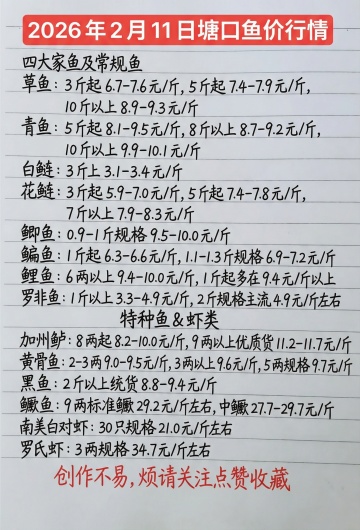 2026年2月11日塘口鱼价行情
四大家鱼及常规鱼
草鱼：3斤起6.7-7.6元/斤，5斤起7.4-7.9元/斤，
10斤以上8.9-9.3元/斤
青鱼：5斤起8.1-9.5元/斤，8斤以上8.7-9.2元/斤，
10斤以上9.9-10.1元/斤
白鲢：3斤上3.1-3.4元/斤
花鲢：3斤起5.9-7.0元/斤，5斤起7.4-7.8元/斤，
7斤以上7.9-8.3元/斤
鲫鱼：0.9-1斤规格9.5-10.0元/斤
鳊鱼：1斤起6.3-6.6元/斤，1.1-1.3斤规格6.9-7.2元/斤
鲤鱼：6两以上9.4-10.0元/斤，1斤起多在9.4元/斤以上
罗非鱼：1斤以上3.3-4.9元/斤，2斤规格主流4.9元/斤左右
特种鱼&虾类
加州鲈：8两起8.2-10.0元/斤，9两以上优质货11.2-11.7元/斤
黄骨鱼：2-3两9.0-9.5元/斤，3两以上9.6元/斤，5两规格9.7元/斤
黑鱼：2斤以上统货8.8-9.4元/斤
鳜鱼：9两标准鳜29.2元/斤左右，中鳜27.7-29.7元/斤
南美白对虾：30只规格21.0元/斤左右
罗氏虾：3两规格34.7元/斤左右
创作不易，烦请关注点赞收藏